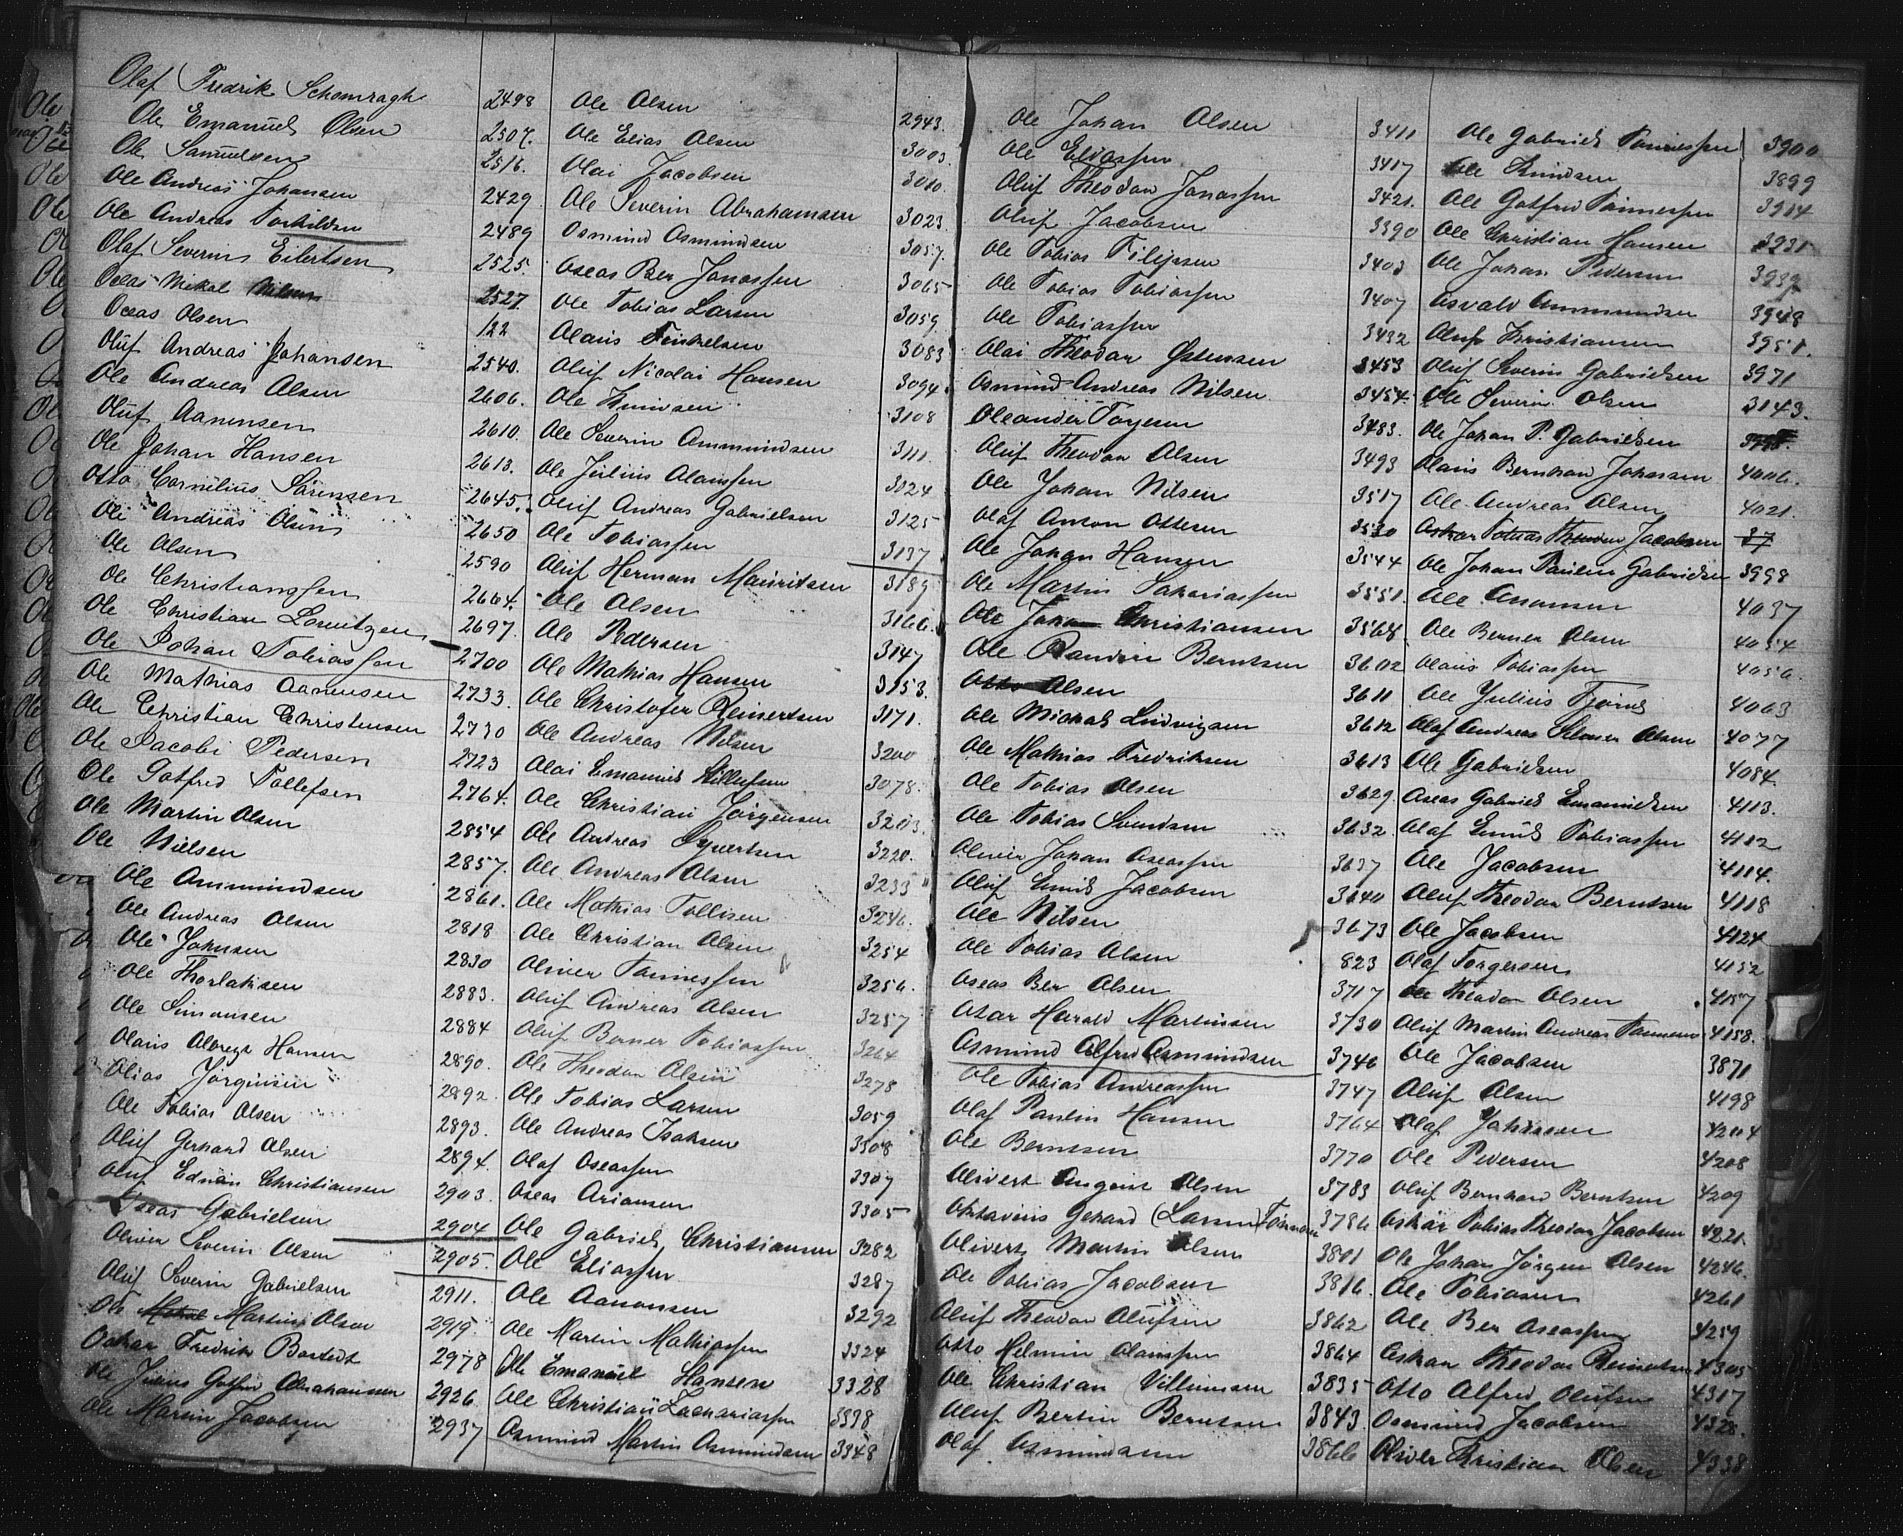 Olaf Fredrik Schomragh 2498
Ole Emanuel Olsen 2507.
Ole Samuelsen 2516.
Ole Andreas Johansen 2429
Ole Andreas Torkildsen 2489
Olaf Severin Eilertsen 2525.
Oseas Mikal Nilsen 2527.
Oseas Olsen 122
Oluf Andreas Johansen 2540.
Ole Andreas Olsen 2606.
Oluf Aanensen 2610.
Ole Johan Hansen 2613.
Otto Cornelius Sørensen 2645.
Ole Andreas Olsen 2650
Ole Olsen 2590
Ole Christianssen 2664.
Ole Christian Loruitzen 2697.
Ole Johan Tobiassen 2700
Ole Mathias Aanensen 2733.
Ole Christian Christensen 2730
Ole Jacobi Pedersen 2723
Ole Gotfred Tollefsen 2764.
Ole Martin Olsen 2854
Ole Nielsen 2857.
Ole Ommundsen 2861.
Ole Andreas Olsen 2818
Ole Johnsen 2830
Ole Thorlaksen 2883.
Ole Simonsen 2884
Olaus Albregt Hansen 2890.
Olias Jørgensen 2892.
Ole Tobias Olsen 2893.
Oluf Gerhard Olsen 2894.
Oluf Edvin Christiansen 2903.
Oseas Gabrielsen 2904
Oliver Severin Olsen 2905.
Oluf Severin Gabrielsen 2911.
Ole Martin Olsen 2919.
Oskar Fredrik Bostedt 2978
Ole Julius Gotfred Abrahamsen 2926.
Ole Martin Jacobsen 2937
Ole Olsen 2943.
Ole Elias Olsen 3003.
Olai Jacobsen 3010.
Ole Severin Abrahamsen 3023.
Osmund Osmundsen 3057.
Oseas Ber Jonassen 3065
Ole Tobias Larsen 3059.
Olaus Teiskelsen 3083
Oluf Nicolai Hansen 3094.
Ole Knudsen 3108
Ole Severin Ommundsen 3111.
Ole Julius Olaussen 3124
Oluf Andreas Gabrielsen 3125
Ole Tobiassen 3137
Oluf Herman Mauritsen 3189
Ole Olsen 3166.
Ole Pedersen 3147
Ole Mathias Hansen 3153.
Ole Christofer Reinertsen 3171.
Ole Andreas Nilsen 3200
Olai Emanuel Tellefsen 3078.
Ole Christian Jørgensen 3203.
Ole Andreas Syvertsen 3220.
Ole Andreas Olsen 3233
Ole Mathias Tollisen 3246.
Ole Christian Olsen 3254
Oliver Tønnessen 3256.
Oluf Andreas Olsen 3257
Oluf Berner Tobiassen 3264
Ole Theodor Olsen 3278
Ole Tobias Larsen 3059.
Ole Andreas Isaksen 3308
Olaf Oseassen 3307
Oseas Arionsen 3305
Ole Gabriel Christiansen 3282
Ole Eliassen 3287
Ole Aanonsen 3292
Ole Martin Mathiassen 3324
Ole Emanuel Hansen 3328
Ole Christian Zachariassen 3338
Osmund Martin Osmundsen 3348
Ole Johan Olsen 3411
Ole Eliassen 3417
Oluf Theodor Jonassen 3421.
Oluf Jacobsen 3390
Ole Tobias Filipsen 3403
Ole Tobias Tobiassen 3407
Ole Tobiassen 3432
Olai Theodor Østensen 3453
Osmund Andreas Nilsen 3454.
Oleander Torgersen 3483.
Oluf Theodor Olsen 3493
Ole Johan Nilsen 3517
Olaf Anton Ottesen 3530
Ole Johan Hansen 3544
Ole Martin Sakariassen 3551.
Ole Johan Christiansen 3568.
Ole Berntsen 3602
Otto Olsen 3611
Ole Michal Ludvigsen 3612
Ole Mathias Fredriksen 3613
Ole Tobias Olsen 3629
Ole Tobias Svendsen 3632.
Oliver Johan Oseassen 3637
Oluf Emil Jacobsen 3640
Ole Nilsen 3673
Ole Tobias Olsen 823
Oseas Ber Olsen 3717
Otar Harald Martinsen 3730
Osmund Alfred Osmundsen 3746
Ole Tobias Andreassen 3747
Olaf Paulin Hansen 3764
Ole Berntsen 3770
Olivert August Olsen 3783
Oktavius Gehard (Larsen) 3786
Olivert Martin Olsen 3801
Ole Tobias Jacobsen 3816.
Oluf Theodor Olufsen 3862
Otto Helmin Olaussen 3864
Ole Christian Villumsen 3835
Oluf Bertin Berntsen 3843.
Olaf Osmundsen 3866
Ole Gabriel Tønnessen 3900
Ole Knudsen 3899
Ole Gotfred Tønnessen 3914
Ole Christian Hansen 3931
Ole Johan Pedersen 3939
Osvald Ommundsen 3948
Oluf Kristiansen 3951.
Oluf Severin Gabrielsen 3971
Ole Severin Olsen 3143.
Ole Johan P. Gabrielsen
Olaus Bernhard Johansen 4006.
Ole Andreas Olsen 4021.
Oskar Tobias Theodor Jacobsen 37
Ole Johan Paulin Gabrielsen 3998
Ole Ononsen 4037
Ole Berner Olsen 4054
Olaus Tobiassen 4056.
Ole Julius Fjørud 4063
Olaf Andreas Olsen 4077
Ole Gabrielsen 4084.
Oseas Gabriel Emanuelsen 4113.
Olaf Emil Tobiassen 4112
Ole Jacobsen 4114.
Oluf Theodor Berntsen 4118
Ole Jacobsen 4124
Olaf Torgersen 4152
Ole Theodor Olsen 4157
Oluf Martin Andreas Tønnesen 4158.
Ole Jacobsen 3871
Oluf Olsen 4198
Olaf Johnsen 4204
Ole Pedersen 4208
Oluf Bernhard Berntsen 4209
Oskar Tobias Theodor Jacobsen 4221.
Ole Johan Jørgen Olsen 4246.
Ole Tobiasen 4261
Ole Ber Oseassen 4259
Oskar Theodor Reinertsen 4305
Otto Alfred Olufsen 4317
Osmund Jacobsen 4328.
Oliver Kristian Olsen 4338